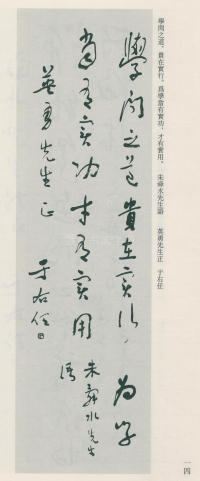 學問之道，貴在實行。爲學當有實功，才有實用。　朱舜水先生語　　英勇先生正　于右任
學问之道貴在實行爲学
當有實功才有實用
朱舜水先生
語
英勇先生正
于右任
一四